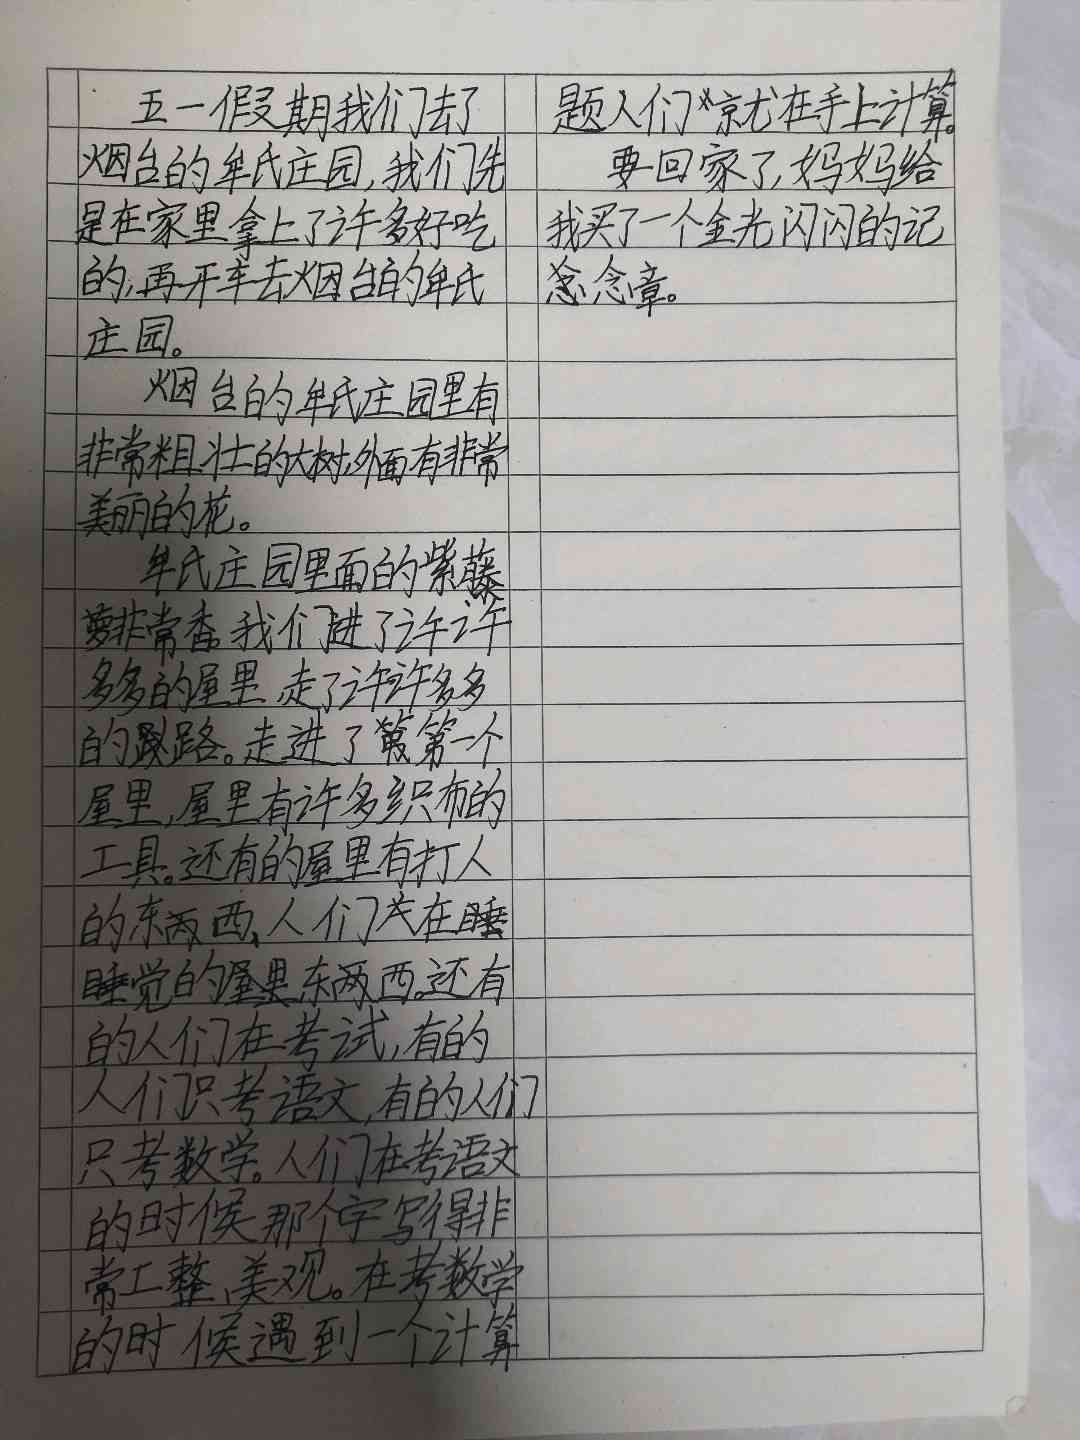 五一假期我们去了
烟台的牟氏庄园,我们先
是在家里拿上了许多好吃
的,再开车去烟台的牟氏
庄园。
烟台的牟氏庄园里有
非常粗壮的大树,外面有非常
美丽的花。
牟氏庄园里面的紫藤
萝非常香。我们进了许许
多多的屋里,走了许许多多
的路。走进了第一个
屋里,屋里有许多织布的
工具。还有的屋里有打人
的东西、人们在睡
睡觉的屋里东西。还有
的人们在考试,有的
人们只考语文,有的人们
只考数学。人们在考语文
的时候那个字写得非
常工整、美观。在考数学
的时候遇到一个计算
题人们就在手上计算。
要回家了,妈妈给
我买了一个金光闪闪的记
念章。